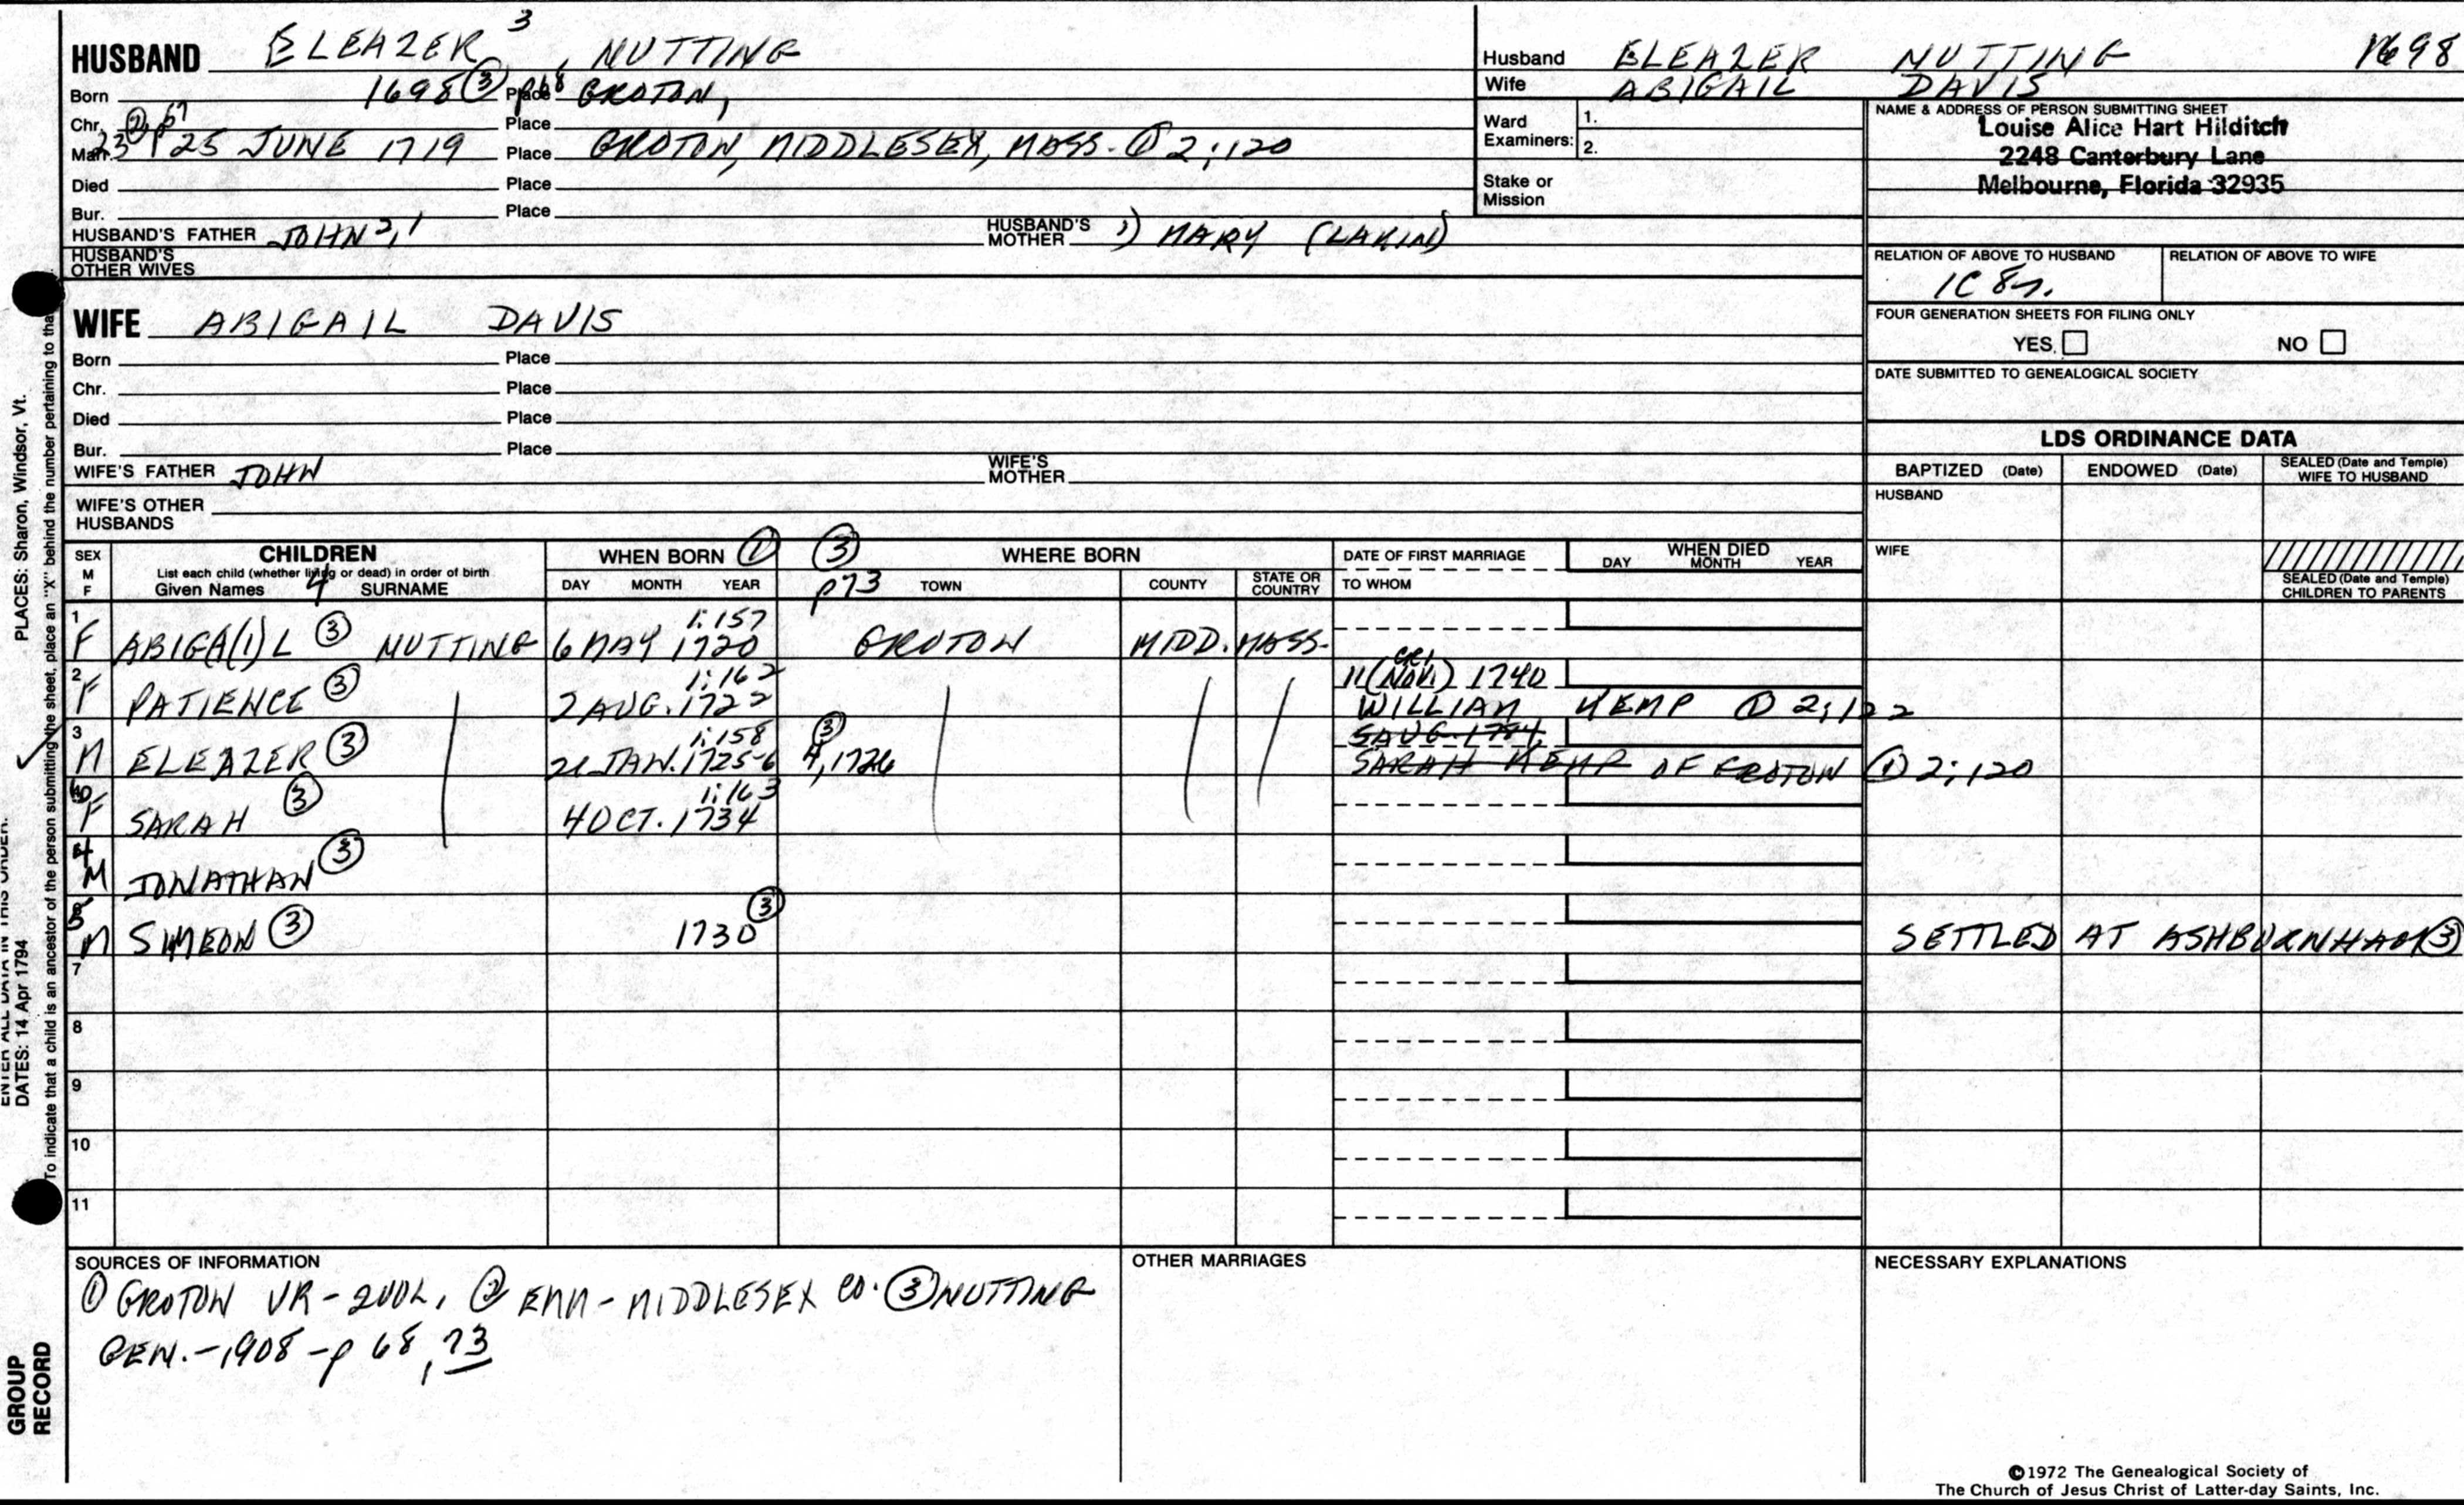 HUSBAND ELEAZER 3, NUTTING
Born 1698 ③ p68 Place GROTON,
Chr. ② p67 Place
Marr. 23 25 JUNE 1719 Place GROTON, MIDDLESEX, MASS. ① 2:120
Died Place
Bur. Place
HUSBAND'S FATHER JOHN 2,1 HUSBAND'S MOTHER 1) MARY (LAKIN)
HUSBAND'S OTHER WIVES
Husband ELEAZER NUTTING 1698
Wife ABIGAIL DAVIS
Ward Examiners: 1.
2.
Stake or Mission
NAME & ADDRESS OF PERSON SUBMITTING SHEET
Louise Alice Hart Hilditch
2248 Canterbury Lane
Melbourne, Florida 32935
RELATION OF ABOVE TO HUSBAND RELATION OF ABOVE TO WIFE
1C 8r.
FOUR GENERATION SHEETS FOR FILING ONLY
YES NO
DATE SUBMITTED TO GENEALOGICAL SOCIETY
WIFE ABIGAIL DAVIS
Born Place
Chr. Place
Died Place
Bur. Place
WIFE'S FATHER JOHN WIFE'S MOTHER
WIFE'S OTHER HUSBANDS
LDS ORDINANCE DATA
BAPTIZED (Date) ENDOWED (Date) SEALED (Date and Temple) WIFE TO HUSBAND
HUSBAND
WIFE
SEALED (Date and Temple) CHILDREN TO PARENTS
SEX M F CHILDREN WHEN BORN ① ③ p73 WHERE BORN DATE OF FIRST MARRIAGE WHEN DIED
List each child (whether living or dead) in order of birth
Given Names 4 SURNAME DAY MONTH YEAR TOWN COUNTY STATE OR COUNTRY TO WHOM DAY MONTH YEAR
1:157
1 F ABIGA(I)L ③ NUTTING 6 MAY 1720 GROTON MIDD. MASS.
1:162 11 (NOV.) CR1 1740
2 F PATIENCE ③ 2 AUG. 1722 WILLIAM KEMP ① 2:122
1:158 ③ 5 AUG. 1754
3 M ELEAZER ③ 21 JAN. 1725-6 4, 1726 SARAH KEMP OF GROTON ① 2:120
1:163
F SARAH ③ 4 OCT. 1734
4 M JONATHAN ③
5 M SIMEON ③ 1730 ③ SETTLED AT ASHBURNHAM ③
7
8
9
10
11
SOURCES OF INFORMATION
① GROTON VR-2VOL, ② EMM-MIDDLESEX CO. ③ NUTTING
GEN.-1908-p 68, 73
OTHER MARRIAGES
NECESSARY EXPLANATIONS
©1972 The Genealogical Society of
The Church of Jesus Christ of Latter-day Saints, Inc.
PLACES: Sharon, Windsor, Vt.
ENTER ALL DATA IN THIS ORDER:
DATES: 14 Apr 1794
To indicate that a child is an ancestor of the person submitting the sheet, place an "X" behind the number pertaining to tha
GROUP
RECORD